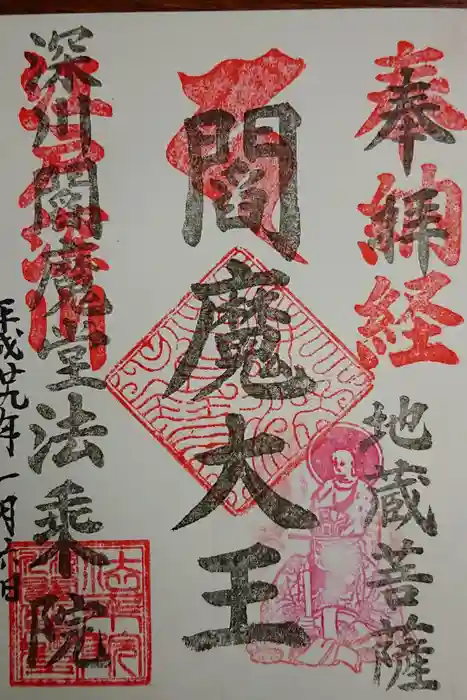 奉拝
奉納経
地蔵菩薩
閻魔大王
深川閻魔堂法乗院
平成廿九年一月六日